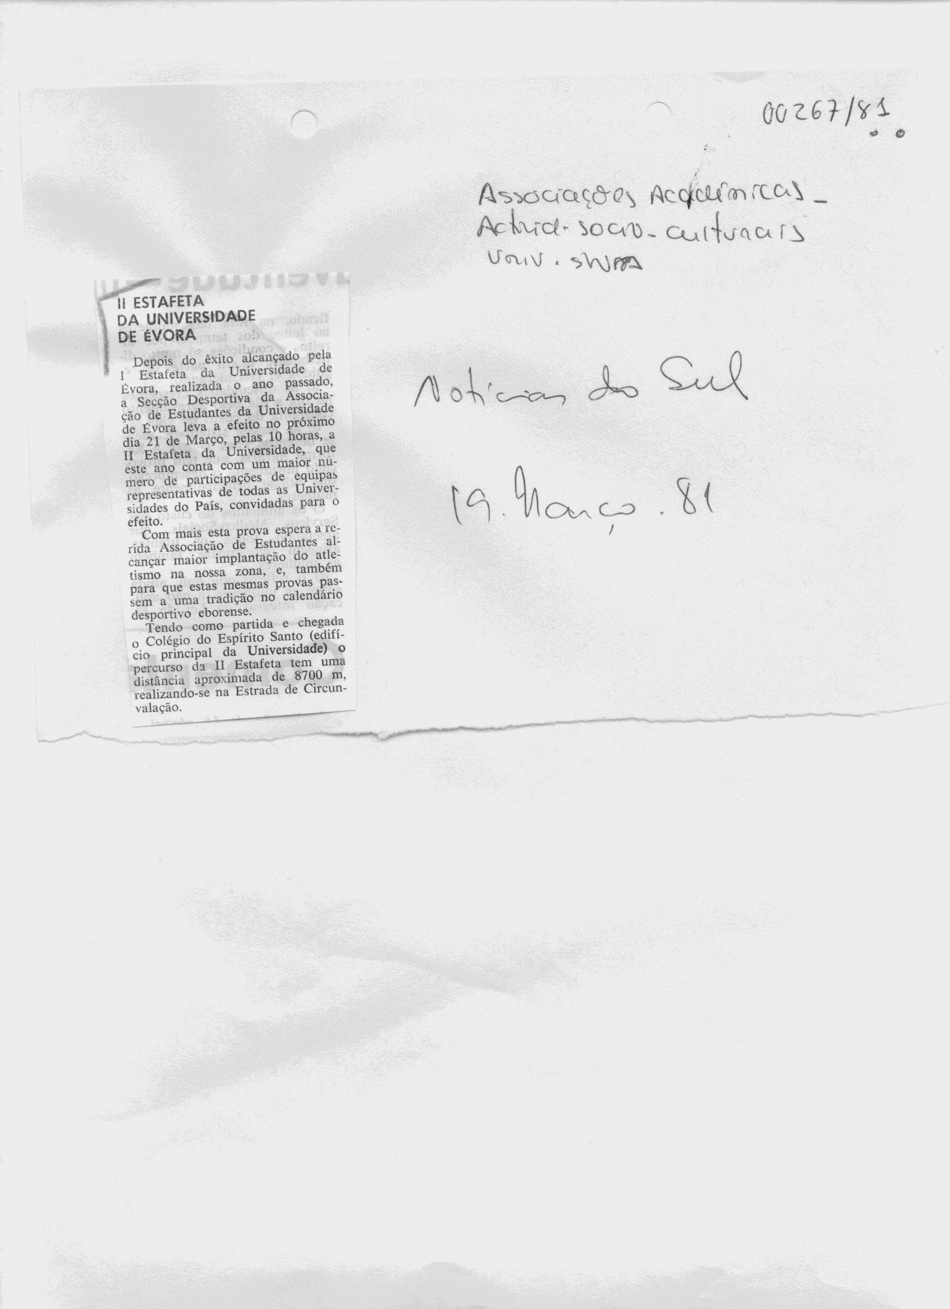 00267/81
Associações Académicas -
Activid. socio-culturais
Univ.
Notícias do Sul
19. Março. 81
II ESTAFETA
DA UNIVERSIDADE
DE ÉVORA
Depois do êxito alcançado pela
I Estafeta da Universidade de
Évora, realizada o ano passado,
a Secção Desportiva da Associa-
ção de Estudantes da Universidade
de Évora leva a efeito no próximo
dia 21 de Março, pelas 10 horas, a
II Estafeta da Universidade, que
este ano conta com um maior nú-
mero de participações de equipas
representativas de todas as Univer-
sidades do País, convidadas para o
efeito.
Com mais esta prova espera a re-
rida Associação de Estudantes al-
cançar maior implantação do atle-
tismo na nossa zona, e, também
para que estas mesmas provas pas-
sem a uma tradição no calendário
desportivo eborense.
Tendo como partida e chegada
o Colégio do Espírito Santo (edifí-
cio principal da Universidade) o
percurso da II Estafeta tem uma
distância aproximada de 8700 m,
realizando-se na Estrada de Circun-
valação.